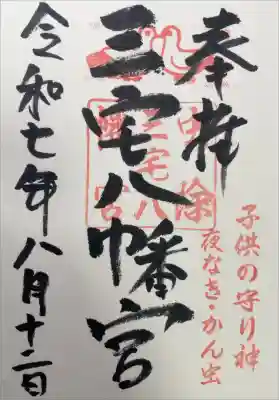 奉拝
子供の守り神
夜なき・かん虫
三宅八幡宮
令和七年八月十二日